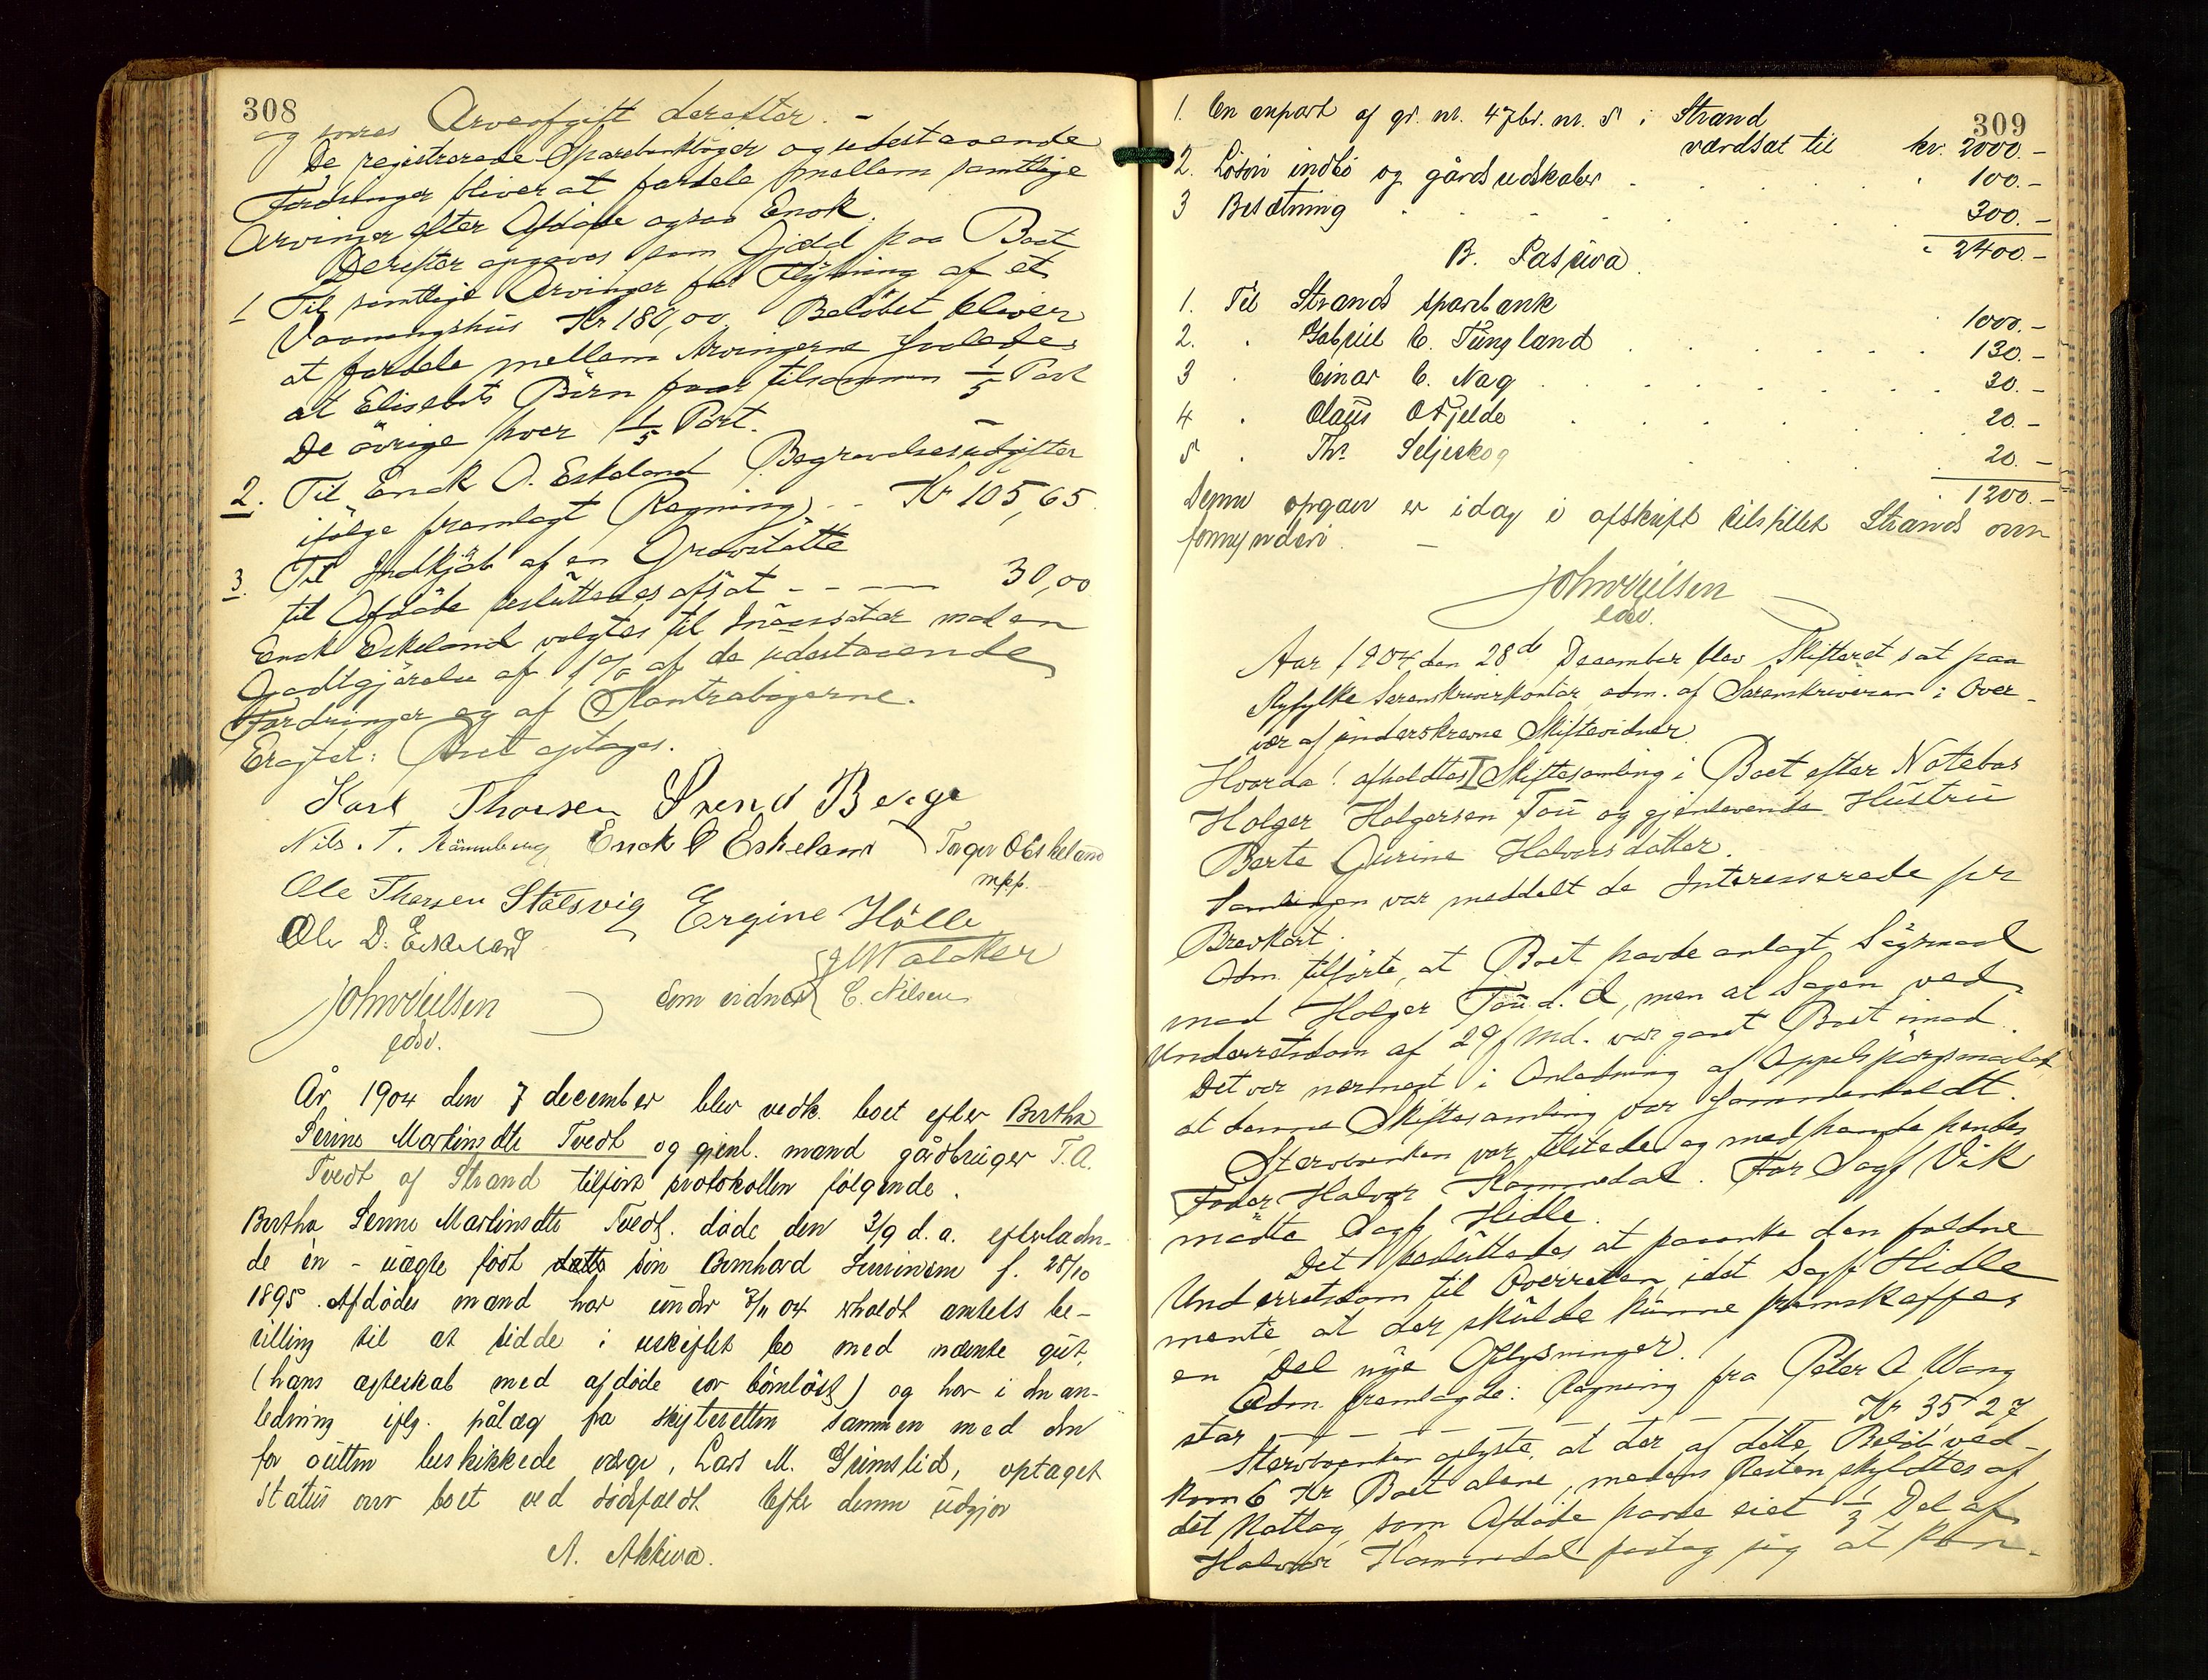 308
og svares Arveafgift derefter. -
De registrerede Sparebankbøger og udestaaende
Fordringer bliver at fordele mellem samtlige
Arvinger efter Afdøde ogsaa Enok.
Derefter opgaves som Gjæld paa Boet
1 Til samtlige Arvinger for af et
Vaaningshus Kr 180,00 Beløbet bliver
at fordele mellem Arvingerne saaledes
at Elisabets Børn faar tilsammen 1/5 Part
De øvrige hver 1/5 Part.
2. Til Enok O. Eskeland Begravelsesudgifter
ifølge fremlagt Regning - - Kr 105,65
3. Til Indkjøb af en Gravstøtte
til Afdøde besluttedes afsat - - - 30,00
Enok Eskeland valgtes til Incassator mod en
Godtgjørelse af % af de udestaaende
Fordringer og af Kontrabøgerne.
Eragtet: Boet optages.
Karl Thorsen Svend Berge
Nils. T. Enok O Eskeland Torger O Eskeland
mpp.
Ole Thorsen Stålsvig Ergine Hølle
Ole D. Eskeland
Walcker
John Nilsen Som vidner C. Nilsen
edsv.
År 1904 den 7 december blev vedk. boet efter Bertha
Serine Martinsdtr Tvedt og gjenl. mand gårdbruger T. A.
Tvedt af Strand tilført protokollen følgende.
Bertha Serine Martinsdtr Tvedt. døde den 2/9 d. a. efterladen-
de en - uægte født datt søn Bernhard f. 28/10
1895. Afdødes mand har under 3/11 04 erholdt amtets be-
villing til at sidde i uskiftet bo med nævnte gut,
(hans ægteskab med afdøde var børnløst) og har i den an-
ledning iflg. pålæg fra skifteretten sammen med den
for gutten beskikkede værge, Lars M. Grimslid, optaget
status over boet ved dødsfaldt. Efter denne udgjør
A. Aktiva.
309
1. En anpart af gr. nr. 47 br. nr. 5 i Strand
værdsat til kr. 2000.-
2. Løsøre indbo og gårdsredskaber . . . 100.-
3 Besætning . . . . 300.-
" 2400.-
B. Passiva.
1. Til Strands sparebank 1000.-
2. " Gabriel C. Tungland . . . . 130.-
3 " Einar C. Nag . . . . 30.-
4 " Olaus Ofjelde . . . . 20.-
5 " Ths. Seljeskog . . . . 20.-
1200.-
Denne opgave er idag i afskrift tilstillet Strands over
formynderi. -
John Nilsen
edsv.
Aar 1904 den 28de December blev Skifteret sat paa
Ryfylke Sorenskriverkontor, adm. af Sorenskriveren i Over-
vær af underskrevne Skiftevidner.
Hvorda! afholdtes I Skiftesamling i Boet efter Notebas
Holger Holgersen Tou og gjenlevende Hustru
Berte Gurine Halvorsdatter.
Samlingen var meddelt de Interesserede pr
Brevkort.
Adm. tilførte, at Boet havde anlagt Søgsmaal
mod Holger Tou d. Æ, men at Sagen ved
Underretsdom af 29/ Md. var gaaet Boet imod.
Det var nærmest i Anledning af Appelspørgsmaalet
at denne Skiftesamling var sammenkaldt.
Stervboenken var tilstede og med hende hendes
Fader Halvor Kommedal. For Sagf Vik
mødte Sagf Hidle.
Det besluttedes at paaanke den faldne
Underretsdom til Overretten, idet Sagf Hidle
mente, at der skulde kunne fremskaffes
en Del nye Oplysninger.
Adm. fremlagde: Regning fra Peter A Wang
stor - - - - - Kr 35 27
Stervboenken oplyste, at der af dette Beløb ved-
kom 6 Kr Boet alene, medens Resten skyldtes af
det Notlag, som Afdøde havde eiet 1/3 Del af.
Halvor Kommedal paatog sig at kon-